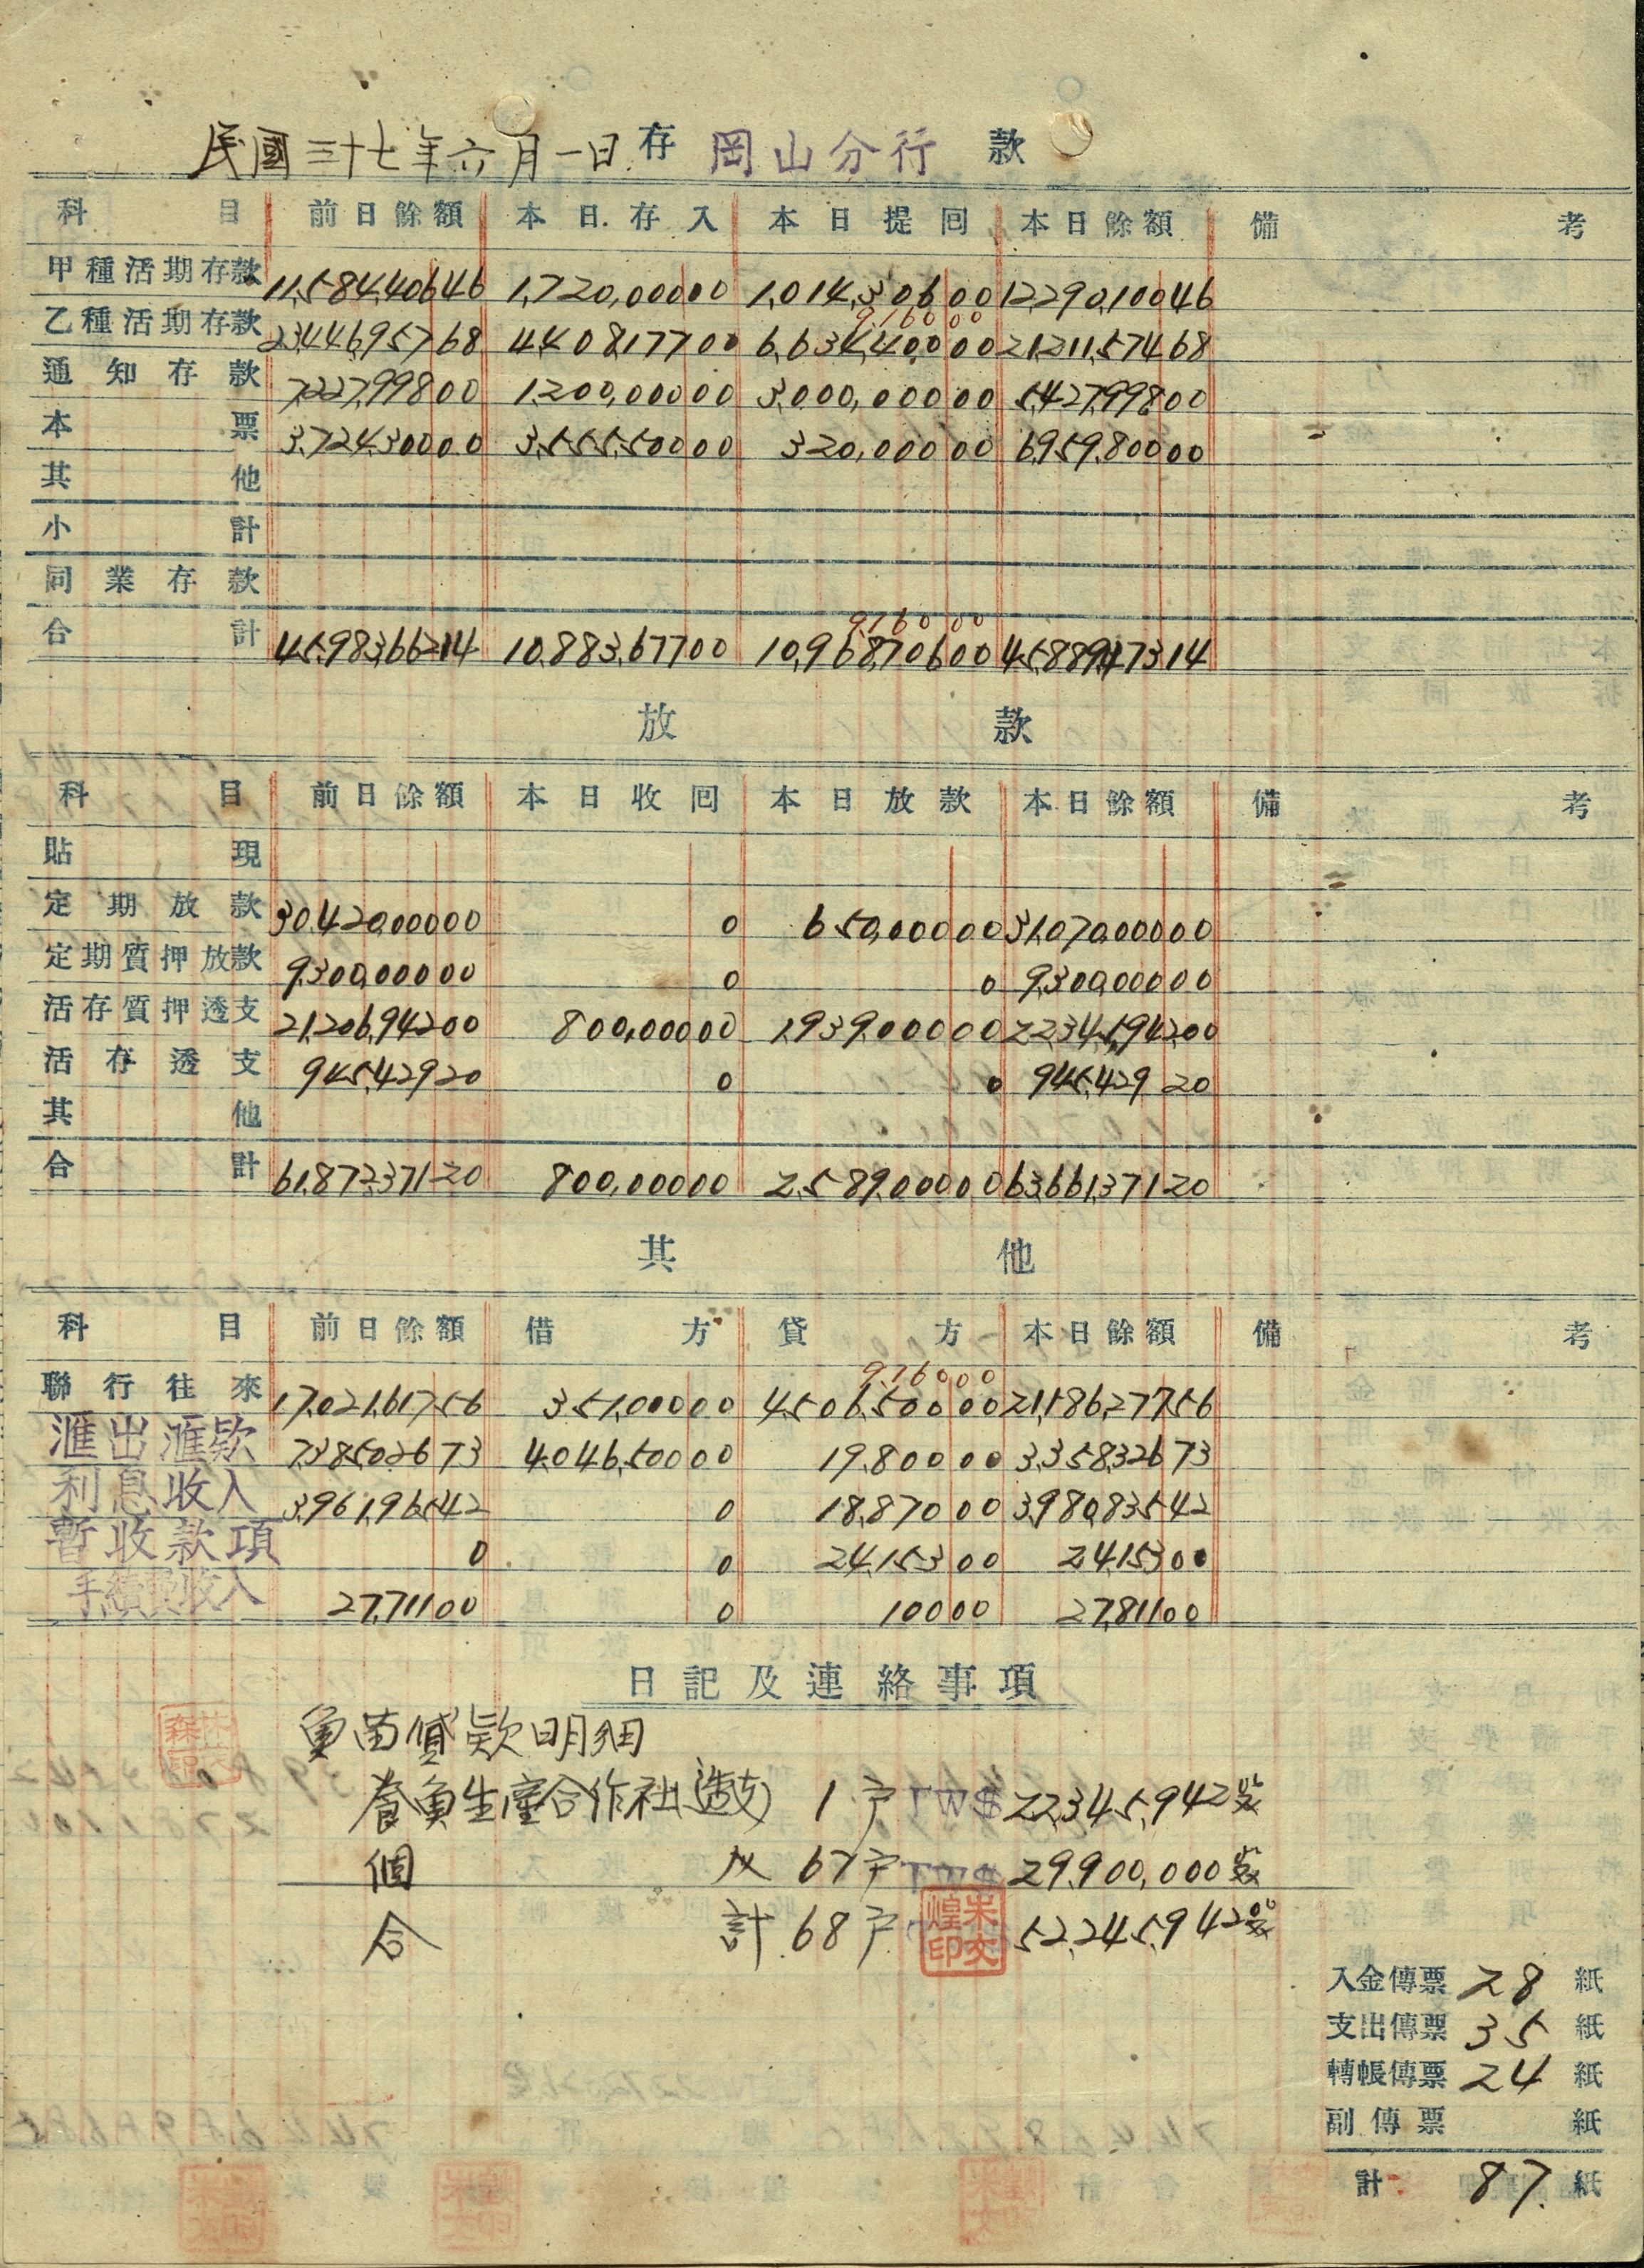 民國三十七年六月一日 存 岡山分行 款
科目 前日餘額 本日存入 本日提囘 本日餘額 備考
甲種活期存款 11,584,406 46 1,720,000 00 1,014,306 00 12,290,100 46
9,160 00
乙種活期存款 23,446,957 68 4,408,177 00 6,634,400 00 21,211,574 68
通知存款 7,227,998 00 1,200,000 00 3,000,000 00 5,427,998 00
本票 3,724,300 00 3,555,500 00 320,000 00 6,959,800 00
其他
小計
同業存款
9,160 00
合計 45,983,662 14 10,883,677 00 10,968,706 00 45,889,473 14
放款
科目 前日餘額 本日收囘 本日放款 本日餘額 備考
貼現
定期放款 30,420,000 00 0 650,000 00 31,070,000 00
定期質押放款 9,300,000 00 0 0 9,300,000 00
活存質押透支 21,206,942 00 800,000 00 1,939,000 00 22,345,942 00
活存透支 945,429 20 0 0 945,429 20
其他
合計 61,872,371 20 800,000 00 2,589,000 00 63,661,371 20
其他
科目 前日餘額 借方 貸方 本日餘額 備考
9,160 00
聯行往來 17,021,617 56 351,000 00 4,506,500 00 21,186,277 56
滙出滙欵 7,385,026 73 4,046,500 00 19,800 00 3,358,326 73
利息收入 3,961,965 42 0 18,870 00 3,980,835 42
暫收款項 0 0 24,153 00 24,153 00
手續費收入 27,711 00 0 100 00 27,811 00
日記及連絡事項
魚苗貸欵明細
養魚生產合作社透支 1戶 TW$ 22,345,942
個人 67戶 TW$ 29,900,000
合計 68戶 52,245,942
朱文煌印
入金傳票 28 紙
支出傳票 35 紙
轉帳傳票 24 紙
副傳票 紙
計 87 紙